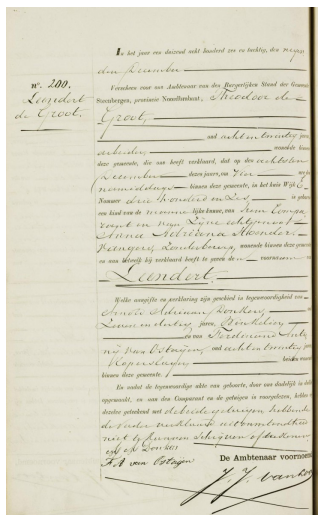 In het jaar een duizend acht honderd zes en tachtig, den negen
den December
N°. 200.
Leendert
de Groot.
Verscheen voor ons Ambtenaar van den Burgerlijken Stand der Gemeente
Steenbergen, provincie Noordbrabant, Theodoor de
Groot,
oud acht en twintig jaren
arbeider, wonende binnen
deze gemeente, die ons heeft verklaard, dat op den achtsten
December dezes jaars, om vier ure des
namiddags binnen deze gemeente, in het huis Wijk
Nummer drie honderd en zes, is geboren
een kind van de mannelijke kunne, van hem Compa
rant en van zijne echtgenoot
Anna Adriana
zonder beroep, wonende binnen deze gemeente
en aan hetwelk hij verklaard heeft te geven de voornaam
Leendert.
Welke aangifte en verklaring zijn geschied in tegenwoordigheid van
Adriaan Donkers,
jaren,
en van Ferdinand Anto
nij van Ostaijen, oud acht en twintig jaren
Koperslager, beiden wonende
binnen deze gemeente.
En omdat de tegenwoordige akte van geboorte, daar van dadelijk in dubbel
opgemaakt, en aan den Comparant en de getuigen is voorgelezen, hebben
dezelve geteekend met de beide getuigen hebbende
de vader verklaard
niet te kunnen schrijven of teekenen
Donkers
F. A van Ostaijen
De Ambtenaar voornoemd
J. J.